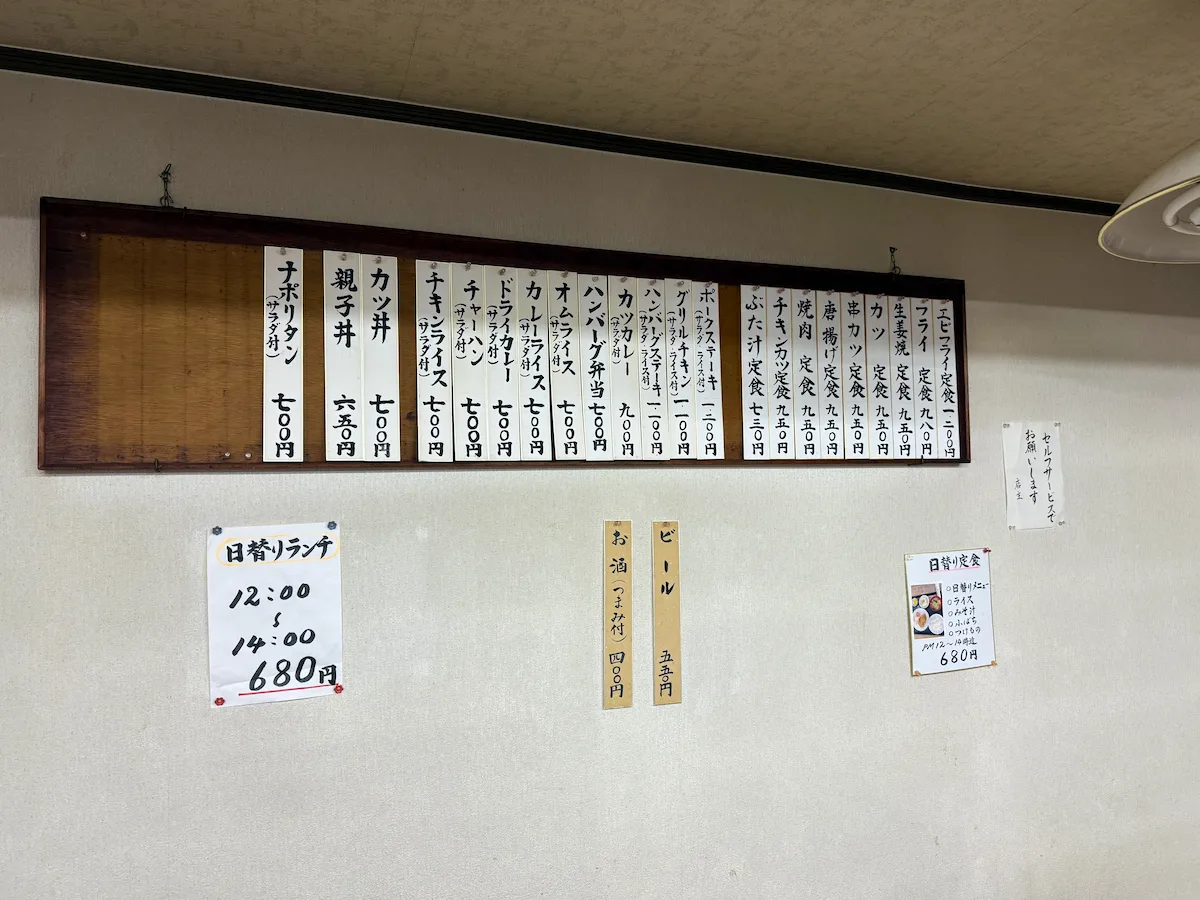 エビフライ定食 一、二〇〇円
フライ 定食 九八〇円
生姜焼 定食 九五〇円
カツ 定食 九五〇円
串カツ 定食 九五〇円
唐揚げ定食 九五〇円
焼肉 定食 九五〇円
チキンカツ定食 九五〇円
ぶた汁定食 七三〇円
ポークステーキ(サラダ ライス付) 一、二〇〇円
グリルチキン(サラダ ライス付) 一、一〇〇円
ハンバーグステーキ(サラダ ライス付) 一、一〇〇円
カツカレー(サラダ付) 九〇〇円
ハンバーグ弁当 七〇〇円
オムライス(サラダ付) 七〇〇円
カレーライス(サラダ付) 七〇〇円
ドライカレー(サラダ付) 七〇〇円
チャーハン(サラダ付) 七〇〇円
チキンライス(サラダ付) 七〇〇円
カツ丼 七〇〇円
親子丼 六五〇円
ナポリタン(サラダ付) 七〇〇円
セルフサービスで
お願いします
店主
日替り定食
○日替りメニュー
○ライス
○みそ汁
○こばち
○つけもの
PM12〜14時迄
680円
ビール 五五〇円
お酒(つまみ付) 四〇〇円
日替りランチ
12:00
〜
14:00
680円